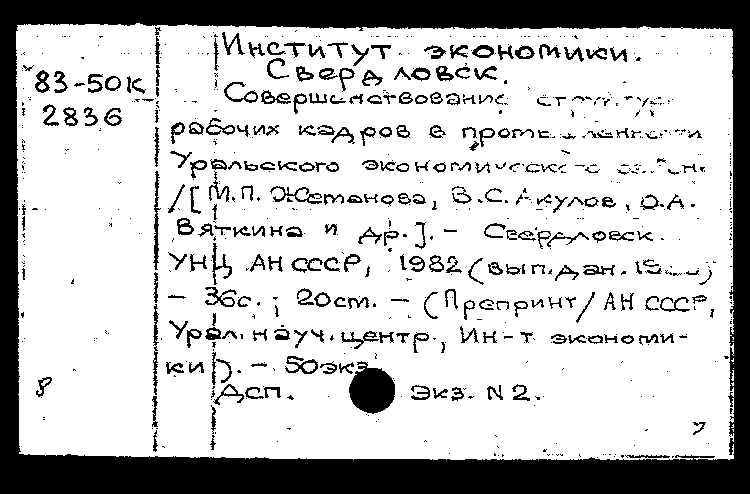 Институт экономики.
83-50к Свердловск.
2836 Совершенствование структуры
рабочих кадров в промышленности
Уральского экономического
/[М.П. Жетанова, В.С. Акулов, О.А.
Вяткина и др.]. - Свердловск.
УНЦ АН СССР, 1982 (вып.дан.
- 36с.; 20см. - (Препринт / АН СССР,
Урал. науч. центр, Ин-т экономи-
ки). - 50экз
Дсп. Экз. N 2.